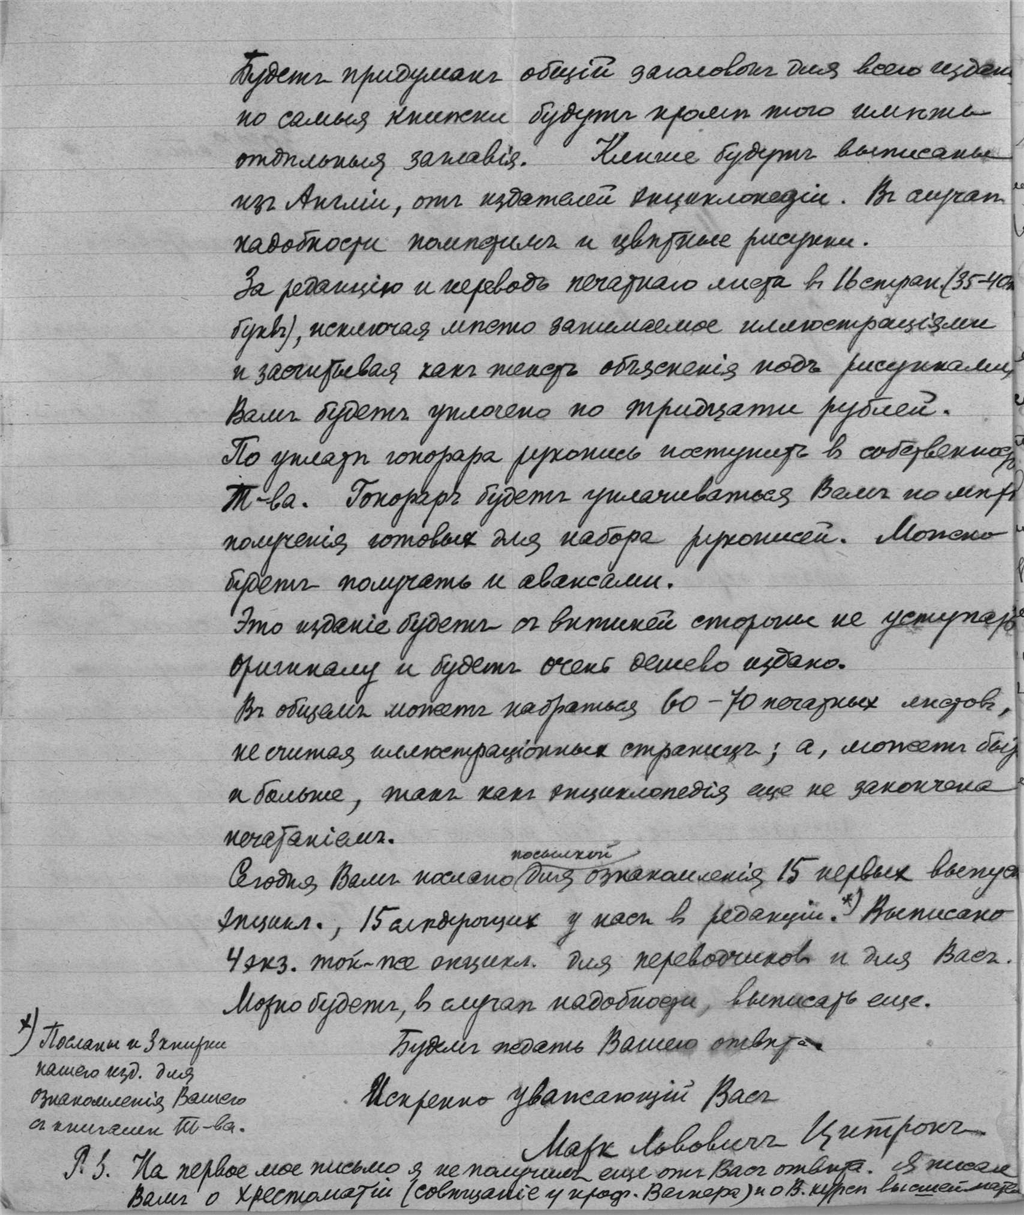 Будетъ придуманъ общій заголовокъ для всего издан
но самыя книжки будутъ кромѣ того имѣть
отдѣльныя заглавія. Клише будутъ выписаны
изъ Англіи, отъ издателей энциклопедіи. Въ случаѣ
надобности помѣстимъ и цвѣтные рисунки.
За редакцію и переводъ печатнаго листа в 16 стран. (35-40т
буквъ), исключая мѣсто занимаемое иллюстраціями
и засчитывая какъ текстъ объясненія подъ рисунками,
Вамъ будетъ уплочено по тридцати рублей.
По уплатѣ гонорара рукопись поступитъ в собственность
Т-ва. Гонораръ будетъ уплачиваться Вамъ по мѣрѣ
полученія готовыхъ для набора рукописей. Можно
будетъ получать и авансами.
Это изданіе будетъ съ внѣшней стороны не уступать
оригиналу и будетъ очень дешево издано.
Въ общемъ можетъ набраться 60-70 печатныхъ листовъ,
не считая иллюстраціонныхъ страницъ; а, можетъ быть
и больше, такъ какъ энциклопедія еще не закончена
печатаніемъ.
посылкой
Сегодня Вамъ послано для ознакомленія 15 первыхъ выпуск
энцикл., 15 слѣдующихъ у насъ в редакціи.*) Выписано
4 экз. той-же энцикл. для переводчиковъ и для Васъ.
Можно будетъ, в случаѣ надобности, выписать еще.
Будемъ ждать Вашего отвѣта.
Искренно уважающій Васъ
Маркъ Львовичъ Цитронъ
*) Посланы и 3 книжки
нашего изд. для
ознакомленія Вашего
съ книгами Т-ва.
P.S. На первое мое письмо я не получилъ еще отъ Васъ отвѣта. Я писалъ
Вамъ о Хрестоматіи (совѣщаніе у проф. Вагнера) и о В. курсѣ высшей мате